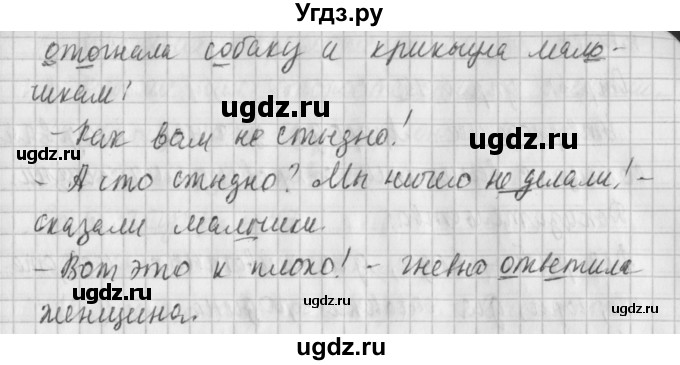 Угдз.ру
отогнала собаку и крикнула маль-
чикам:
ugdz.ru ugdz.ru
- Как вам не стыдно!
ugdz.ru ugdz.ru
- А что стыдно? Мы ничего не делали! -
сказали мальчики.
ugdz.ru
- Вот это и плохо! - гневно ответила
ugdz.ru ugdz.ru
женщина.
ugdz.ru
ugdz.ru